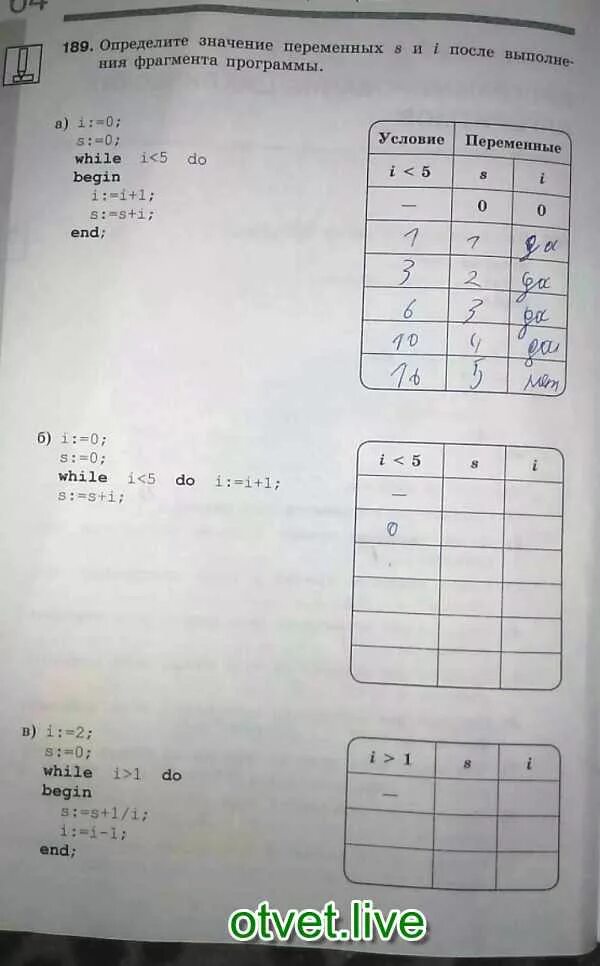 189. Определите значение переменных s и i после выполне-
ния фрагмента программы.
а) i:=0;
s:=0;
while i<5 do
begin
i:=i+1;
s:=s+i;
end;
Условие Переменные
i < 5 s i
— 0 0
1 1 да
3 2 да
6 3 да
10 4 да
16 5 нет
б) i:=0;
s:=0;
while i<5 do i:=i+1;
s:=s+i;
i < 5 s i
—
0
в) i:=2;
s:=0;
while i>1 do
begin
s:=s+1/i;
i:=i-1;
end;
i > 1 s i
—
otvet.live